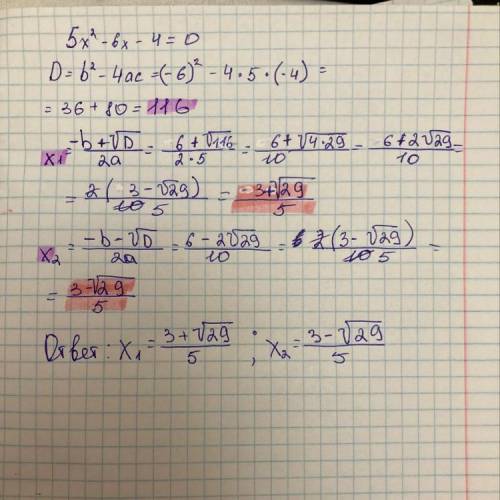 5x² - 6x - 4 = 0
D = b² - 4ac = (-6)² - 4 · 5 · (-4) =
= 36 + 80 = 116
x₁ = (-b + √D)/2a = (6 + √116)/(2 · 5) = (6 + √(4 · 29))/10 = (6 + 2√29)/10 =
= 2(3 - √29)/10 5 = (3 + √29)/5
x₂ = (-b - √D)/2a = (6 - 2√29)/10 = 2(3 - √29)/10 5 =
= (3 - √29)/5
Ответ: x₁ = (3 + √29)/5 ; x₂ = (3 - √29)/5